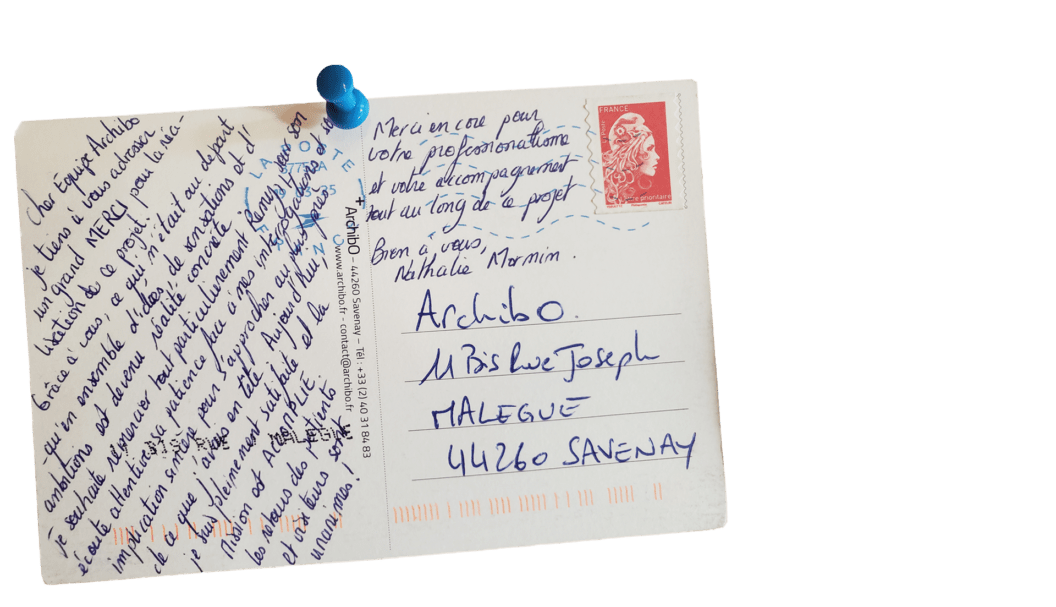 Cher Equipe Archibo
je tiens à vous adresser
un grand MERCI pour la réa-
lisation de ce projet.
Grâce à vous, ce qui n'était au départ
qu'en ensemble d'idées, de sensations et d'
ambitions est devenu réalité concrète.
je souhaite remercier tout particulièrement Remy, pour son
écoute attentive, sa patience face à mes interrogations et son
implication sincère pour s'approcher au plus près
de ce que j'avais en tête. Aujourd'hui
je suis pleinement satisfaite et la
mission est ACCOMPLIE
les retours des patients
et visiteurs sont
unanimes !
LA POSTE
+ ArchibO – 44260 Savenay – Tél : +33 (2) 40 31 84 83
www.archibo.fr - contact@archibo.fr
BIS RUE J MALEGUE
Merci encore pour
votre professionnalisme
et votre accompagnement
tout au long de ce projet
Bien à vous,
Nathalie Mornim.
FRANCE
Lettre prioritaire
ArchibO.
11 Bis Rue Joseph
MALEGUE
44260 SAVENAY